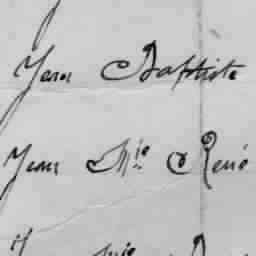 Jean Baptiste
Jean M.ie René